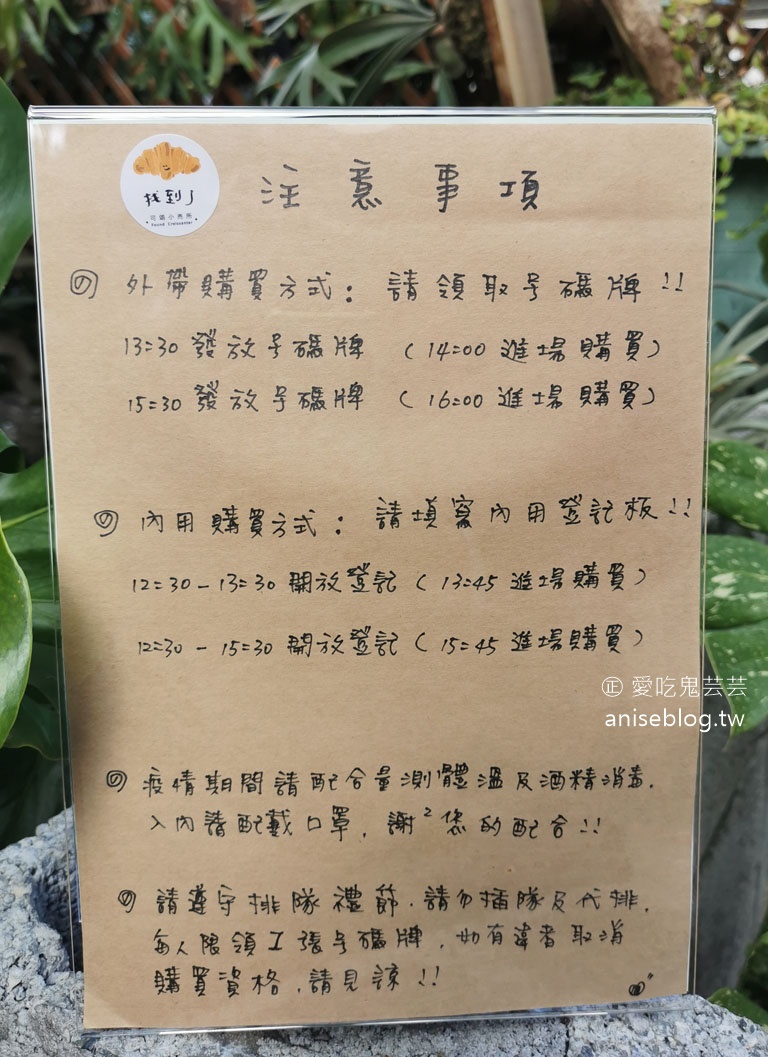 找到了
可頌小秀所
Found Croissanter
注意事項
外帶購買方式：請領取号碼牌!!
13:30 發放号碼牌（14:00 進場購買）
15:30 發放号碼牌（16:00 進場購買）
內用購買方式：請填寫內用登記板!!
12:30 - 13:30 開放登記（13:45 進場購買）
12:30 - 15:30 開放登記（15:45 進場購買）
㊣ 愛吃鬼芸芸
aniseblog.tw
疫情期間請配合量測體溫及酒精消毒，
入內請配戴口罩，謝²您的配合!!
請遵守排隊禮節，請勿插隊及代排，
每人限領1張号碼牌，如有違者取消
購買資格，請見諒!!